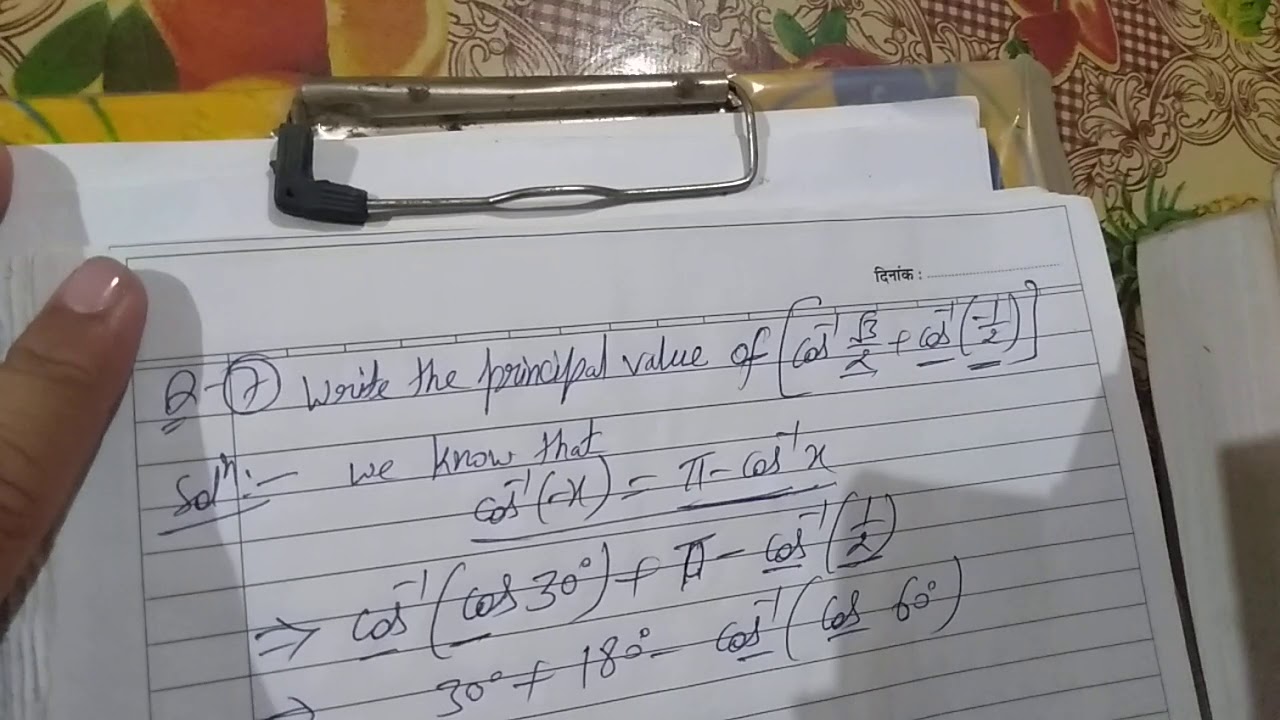 दिनांक :
Q-7 Write the principal value of [cos⁻¹ √3/2 + cos⁻¹ (-1/2)]
Solⁿ:- we know that
cos⁻¹(-x) = π - cos⁻¹x
⇒ cos⁻¹(cos 30°) + π - cos⁻¹(1/2)
⇒ 30° + 180° - cos⁻¹(cos 60°)